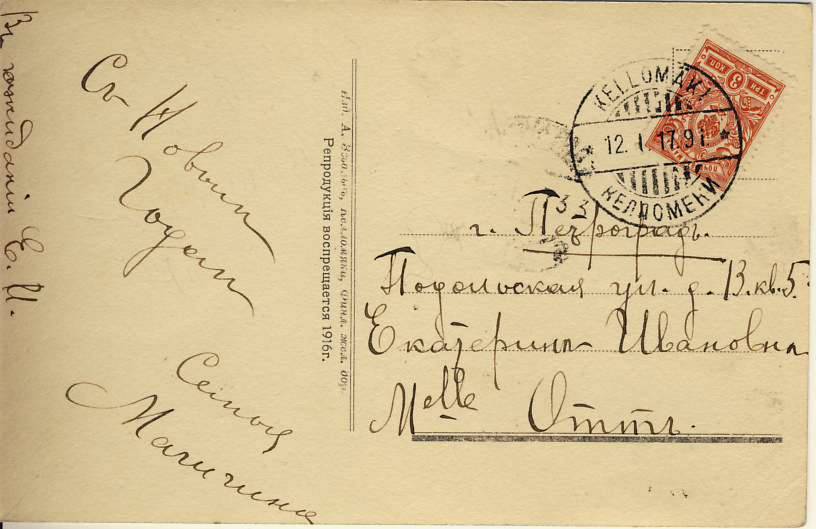 Въ ожиданіи Е. И.
Съ Новымъ
Годомъ
Семья
Магигина
Изд. А. келломяки, Финл. жел. дор.
Репродукція воспрещается 1916г.
KELLOMÄKI
12. I. 17. 91
КЕЛЛОМЕКИ
3 КОП
ТРИ КОП
33
г. Петроградъ.
Подольская ул. д. 13. кв. 5
Екатерина Ивановна
Melle Оттъ.